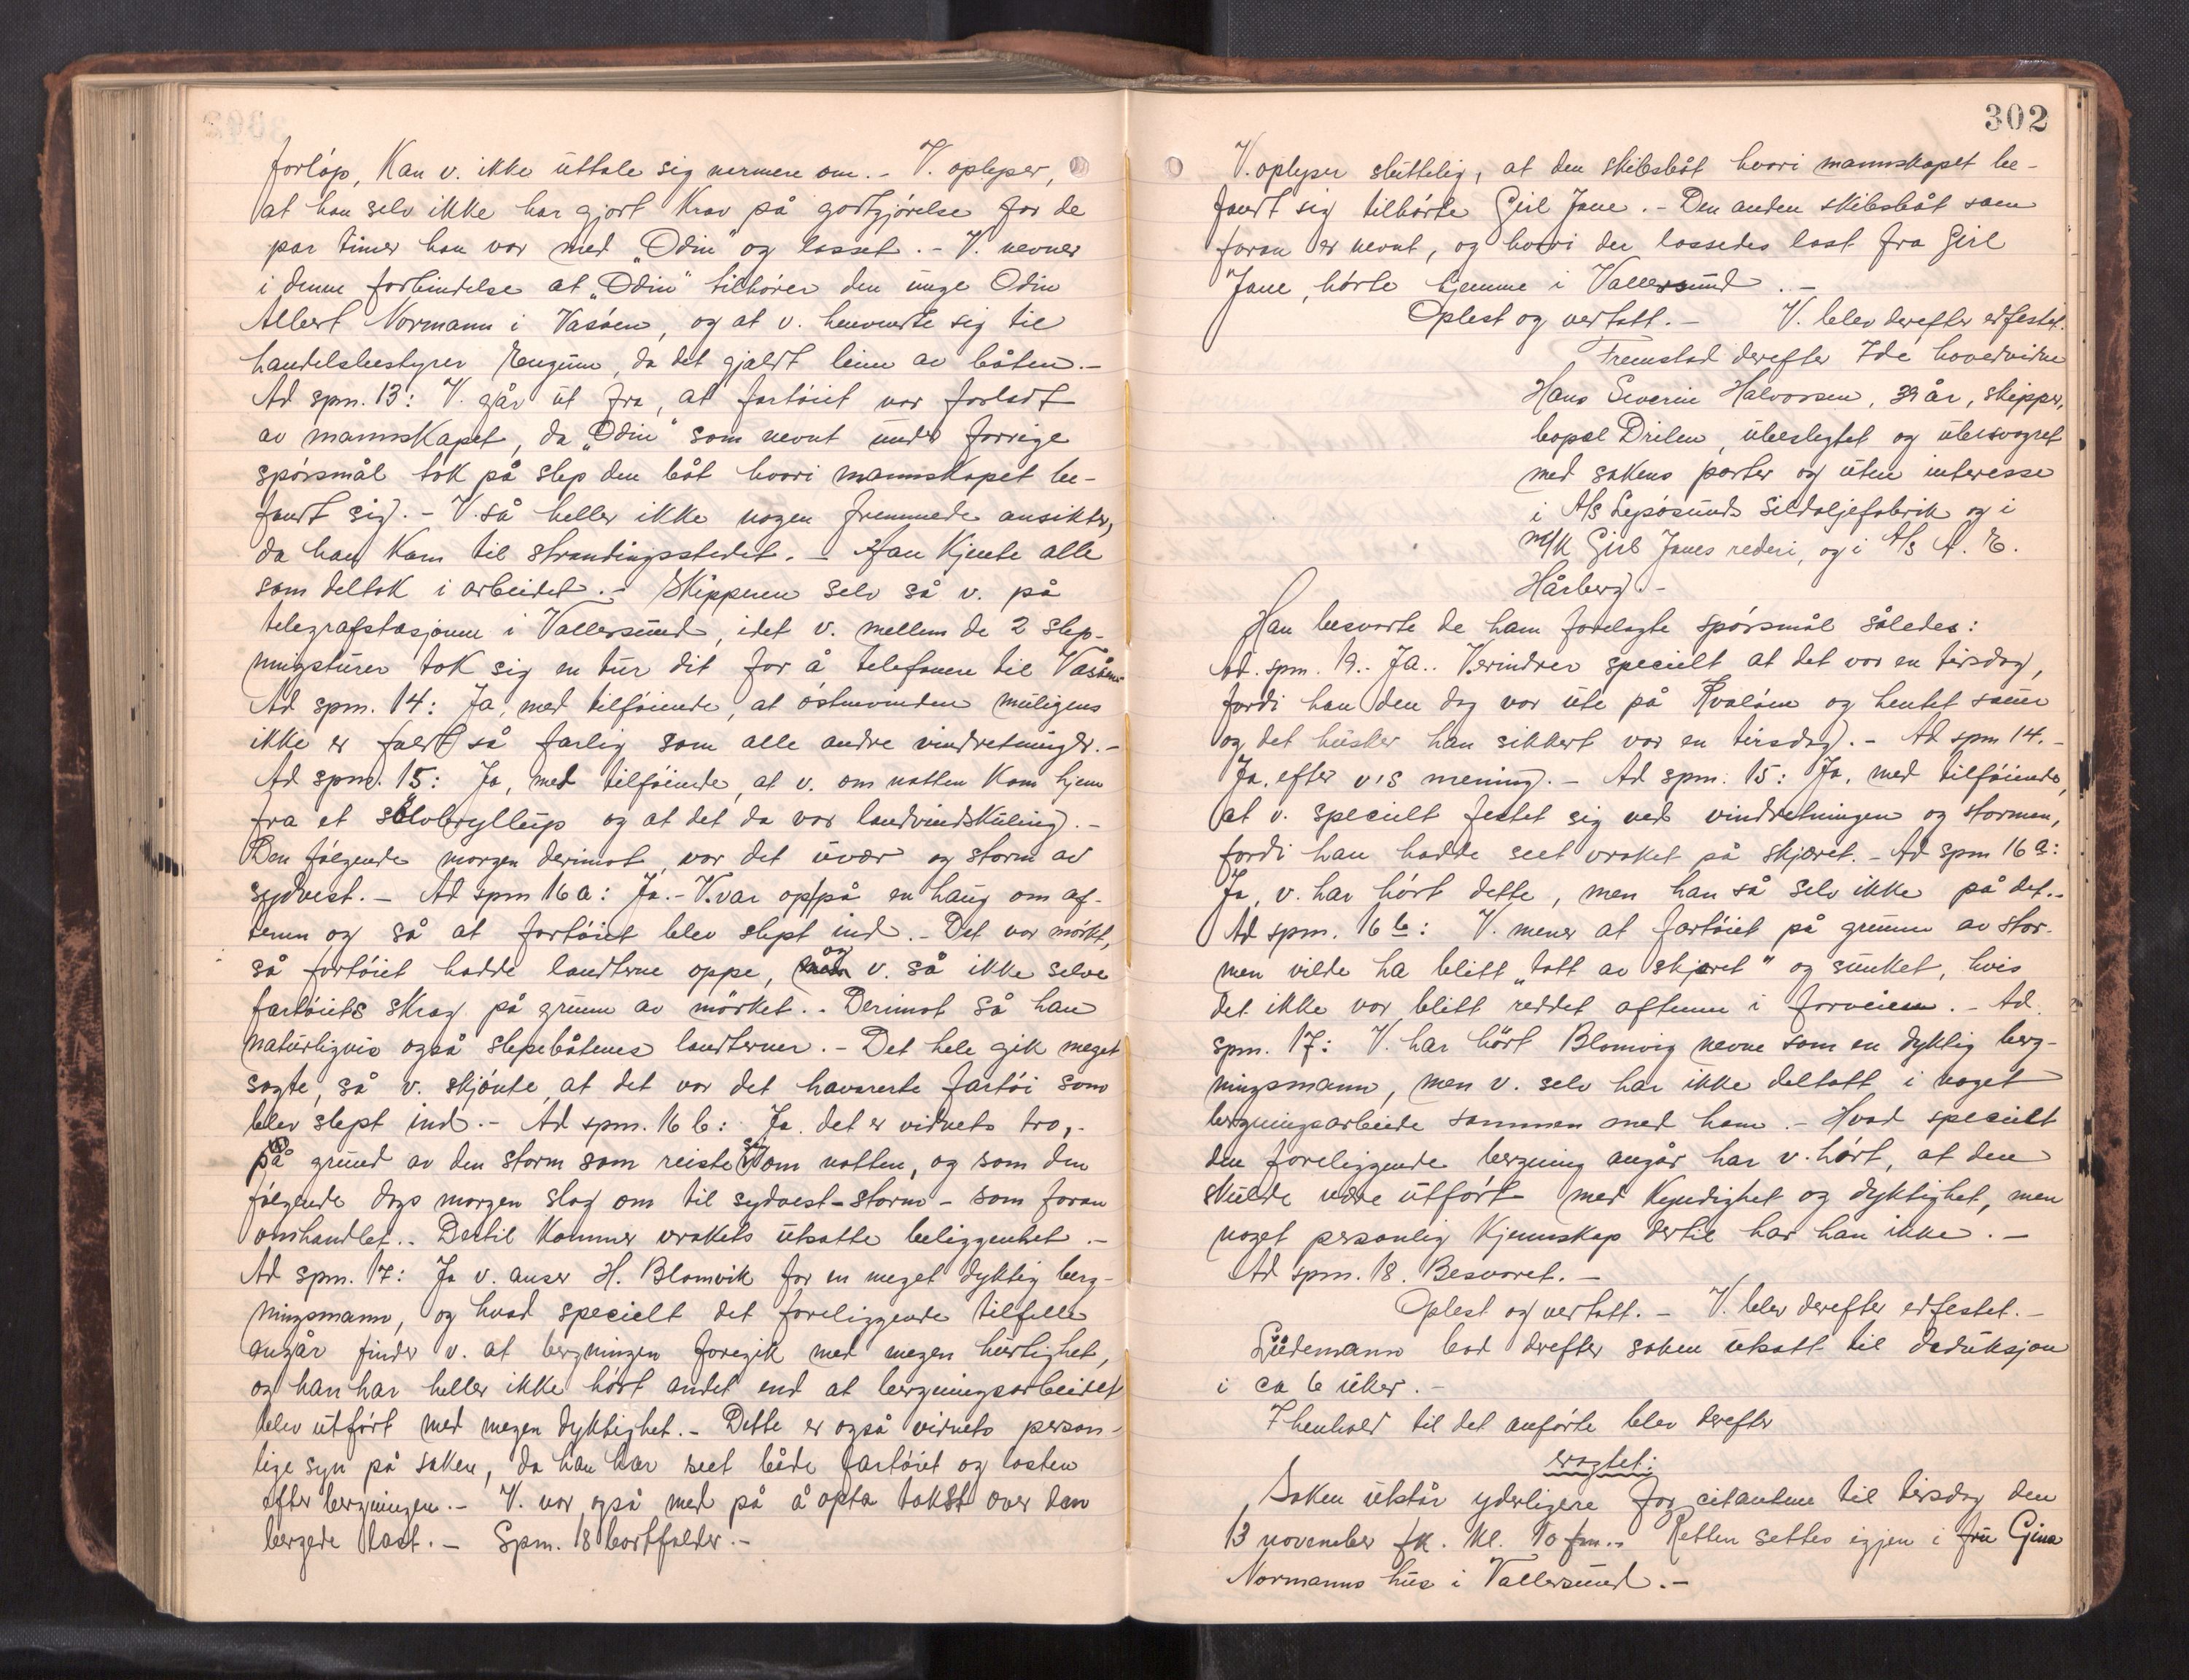 forløp, kan v. ikke uttale sig nermere om. - V. oplyser,
at han selv ikke har gjort krav på godtgjørelse for de
par timer han var med „Odin" og losset. - V. nevner
i denne forbindelse at „Odin" tilhører den unge Odin
Albert Normann i Vasøen, og at v. henvendte sig til
handelsbestyrer Engum, da det gjaldt leien av båten. -
Ad spm. 13: V. går ut fra, at fartøiet var forlatt
av mannskapet, da „Odin" som nevnt under forrige
spørsmål tok på slep den båt hvori mannskapet be-
fandt sig. - V. så heller ikke nogen fremmede ansikter,
da han kom til strandingsstedet. - Han kjente alle
som deltok i arbeidet. - Skipperen selv så v. på
telegrafstasjonen i Vallersund, idet v. mellem de 2 slep-
ningsturer tok sig en tur dit for å telefonere til Vasøen -
Ad spm. 14: Ja, med tilføiende, at østenvinden muligens
ikke er fuldt så farlig som alle andre vindretninger. -
Ad spm. 15: Ja, med tilføiende, at v. om natten kom hjem
fra et sølvbryllup og at det da var landvindskuling. -
Den følgende morgen derimot, var det uvær og storm av
sydvest. - Ad spm 16 a: Ja. - V. var op på en haug om af-
tenen og så at fartøiet blev slept ind. - Det var mørkt,
så fartøiet hadde landterne oppe, og v. så ikke selve
fartøiets skrog på grunn av mørket. - Derimot så han
naturligvis også slepebåtenes landterner. - Det hele gik meget
sagte, så v. skjønte, at det var det havarerte fartøi som
blev slept ind. - Ad spm. 16 b: Ja. det er vidnets tro, -
på grund av den storm som reiste sig om natten, og som den
følgende dags morgen slog om til sydvest-storm - som foran
omhandlet. - Dertil kommer vrakets utsatte beliggenhet. -
Ad spm. 17: Ja v. anser H. Blomvik for en meget dyktig berg-
ningsmann, og hvad specielt det foreliggende tilfelle
angår finder v. at bergningen foregik med megen hurtighet,
og han har heller ikke hørt andet end at bergningsarbeidet
blev utført med megen dyktighet. - Dette er også vidnets person-
lige syn på saken, da han har seet både fartøiet og lasten
efter bergningen. - V. var også med på å opta takst over den
bergede last. - Spm. 18 bortfalder. -
302
V. oplyser sluttelig, at den skibsbåt hvori mannskapet be-
fandt sig tilhørte Girl Jane. - Den anden skibsbåt som
foran er nevnt, og hvori der lossedes last fra Girl
Jane, hørte hjemme i Vallersund. -
Oplest og vertatt. - V. blev derefter edfestet.
Fremstod derefter 7de hovedvidne
Hans Severin Halvorsen, 39 år, skipper,
bopæl Drilen, ubeslegtet og ubesvogret
med sakens parter og uten interesse
i A/s Lepøsunds Sildoljefabrik og i
M/K Girl Janes rederi, og i A/s A. E.
Hårberg. -
Han besvarte de ham forelagte spørsmål således:
Ad. spm. 19. - Ja. - V. erindrer specielt at det var en tirsdag,
fordi han den dag var ute på Kvaløen og hentet sauer
og det husker han sikkert var en tirsdag. - Ad spm 14. -
Ja. efter v's mening. - Ad spm. 15: Ja, med tilføiende,
at v. specielt festet sig ved vindretningen og stormen,
fordi han hadde seet vraket på skjæret. - Ad spm 16 a:
Ja, v. har hørt dette, men han så selv ikke på det. -
Ad spm. 16 b: V. mener at fartøiet på grunn av stor-
men vilde ha blitt „tatt av skjæret" og sunket, hvis
det ikke var blitt reddet aftenen i forveien. - Ad
spm. 17: V. har hørt Blomvig nevne som en dyktig berg-
ningsmann, men v. selv har ikke deltatt i noget
bergningsarbeide sammen med ham. - Hvad specielt
den foreliggende bergning angår har v. hørt, at den
skulde være utført med kyndighet og dyktighet, men
noget personlig kjennskap dertil har han ikke. -
Ad spm. 18. Besvaret. -
Oplest og vertatt. - V. blev derefter edfestet. -
Lüdemann bad derefter saken utsatt til deduksjon
i ca 6 uker. -
I henhold til det anførte blev derefter
eragtet:
Saken utstår yderligere for citanten til tirsdag den
13 november fk. kl. 10 fm. - Retten settes igjen i fru Gina
Normanns hus i Vallersund. -